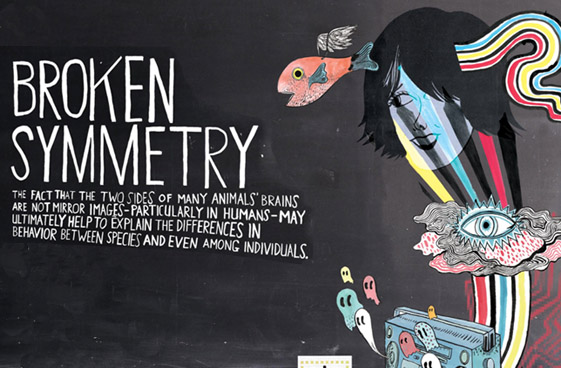 BROKEN
SYMMETRY
THE FACT THAT THE TWO SIDES OF MANY ANIMALS' BRAINS
ARE NOT MIRROR IMAGES-PARTICULARLY IN HUMANS-MAY
ULTIMATELY HELP TO EXPLAIN THE DIFFERENCES IN
BEHAVIOR BETWEEN SPECIES AND EVEN AMONG INDIVIDUALS.